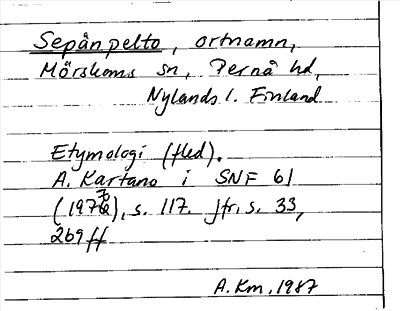 Sepänpelto, ortnamn,
Mörskoms sn, Pernå hd,
Nylands l. Finland
Etymologi (fled).
A. Kartano i SNF 61
(1970), s. 117. Jfr, s. 33,
269 ff
A. Km, 1987